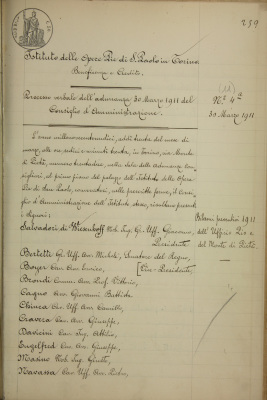 259
Istituto delle Opere Pie di S. Paolo in Torino
Beneficenza e Credito
Processo verbale dell'adunanza 30 Marzo 1911 del
Consiglio d'Amministrazione.
(11)
N.° 4°
30 Marzo 1911
L'anno millenovecentoundici, addì trenta del mese di
marzo, alle ore sedici e minuti trenta, in Torino, via Monte
di Pietà, numero trentadue, nella sala delle adunanze Con-
sigliari, al primo piano del palazzo dell'Istituto delle Opere
Pie di San Paolo, convocatosi, nelle prescritte forme, il Consi-
glio d'Amministrazione dell'Istituto stesso, risultano presenti
i Signori:
Salvadori di Wiesenhoff Nob. Ing. Gr. Uff. Giacomo,
Presidente
Bertetti Gr. Uff. Avv. Michele, Senatore del Regno,
Vice-Presidente
Boyer Cav. Avv. Enrico,
Brondi Comm. Avv. Prof. Vittorio,
Cagno Cav. Giovanni Battista
Chiesa Cav. Uff. Avv. Camillo,
Cravero Cav. Avv. Giuseppe,
Davicini Cav. Ing. Attilio,
Engelfred Cav. Avv. Giuseppe,
Masino Nob. Ing. Giulio,
Navassa Cav. Uff. Avv. Pietro,
1911
dell'Ufficio Pio e
del Monte di Pietà.